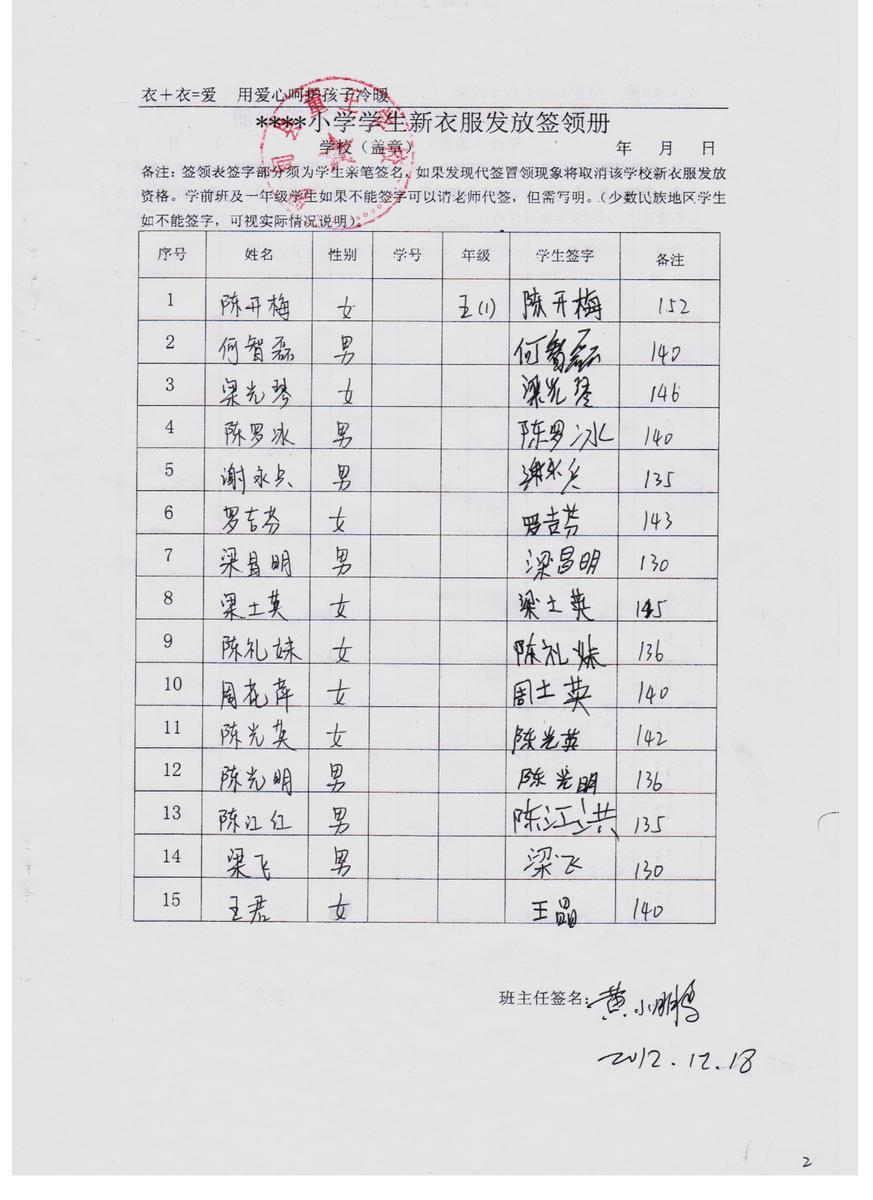 衣＋衣=爱 用爱心呵护孩子冷暖
****小学学生新衣服发放签领册
学校（盖章） 年 月 日
备注：签领表签字部分须为学生亲笔签名，如果发现代签冒领现象将取消该学校新衣服发放
资格。学前班及一年级学生如果不能签字可以请老师代签，但需写明。（少数民族地区学生
如不能签字，可视实际情况说明）。
序号 姓名 性别 学号 年级 学生签字 备注
1 陈开梅 女 五(1) 陈开梅 152
2 何智磊 男 何智磊 140
3 梁光琴 女 梁光琴 146
4 陈罗冰 男 陈罗冰 140
5 谢永兵 男 谢永兵 135
6 罗吉芬 女 罗吉芬 143
7 梁昌明 男 梁昌明 130
8 梁士英 女 梁士英 145
9 陈礼妹 女 陈礼妹 136
10 周花萍 女 周士英 140
11 陈光英 女 陈光英 142
12 陈光明 男 陈光明 136
13 陈江红 男 陈江洪 135
14 梁飞 男 梁飞 130
15 王君 女 王晶 140
班主任签名：黄小鹏
2012.12.18
2